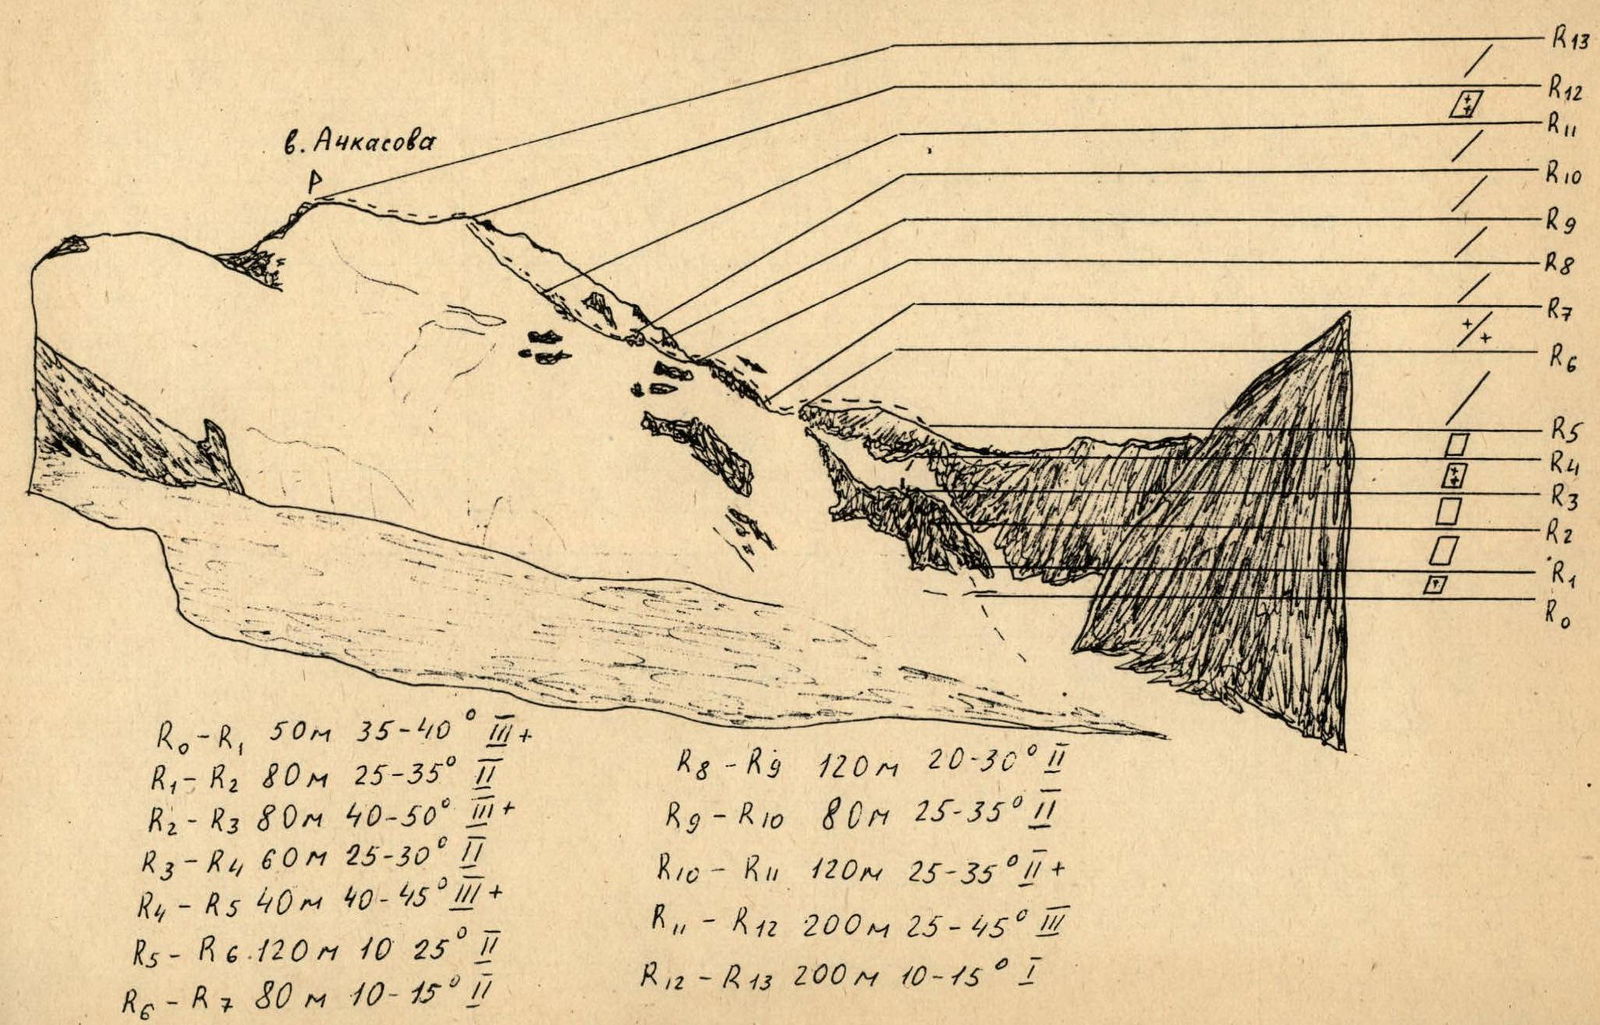 R13
R12
R11
R10
R9
R8
R7
R6
R5
R4
R3
R2
R1
R0
в. Ачкасова
R0-R1 50м 35-40° III+
R1-R2 80м 25-35° II
R2-R3 80м 40-50° III+
R3-R4 60м 25-30° II
R4-R5 40м 40-45° III+
R5-R6 120м 10 25° II
R6-R7 80м 10-15° II
R8-R9 120м 20-30° II
R9-R10 80м 25-35° II
R10-R11 120м 25-35° II+
R11-R12 200м 25-45° III
R12-R13 200м 10-15° I